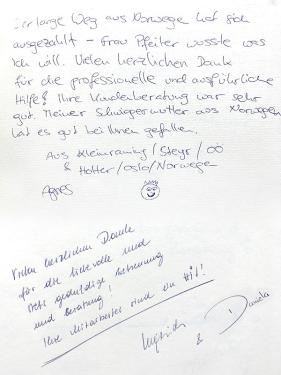 Der lange Weg aus Norwegen hat sich
ausgezahlt – Frau Pfeiter wusste was
ich will. Vielen herzlichen Dank
für die professionelle und ausführliche
Hilfe! Ihre Kundenberatung war sehr
gut. Meiner Schwiegermutter aus Norwegen
hat es gut bei Ihnen gefallen.
Aus Kleinraming / Steyr / OÖ
& Holter / Oslo / Norwege
Agnes
Vielen herzlichen Danke
für die liebevolle und
stets geduldige Betreuung
und Beratung!
Ihre Mitarbeiter sind ein Hit!
& Daniela